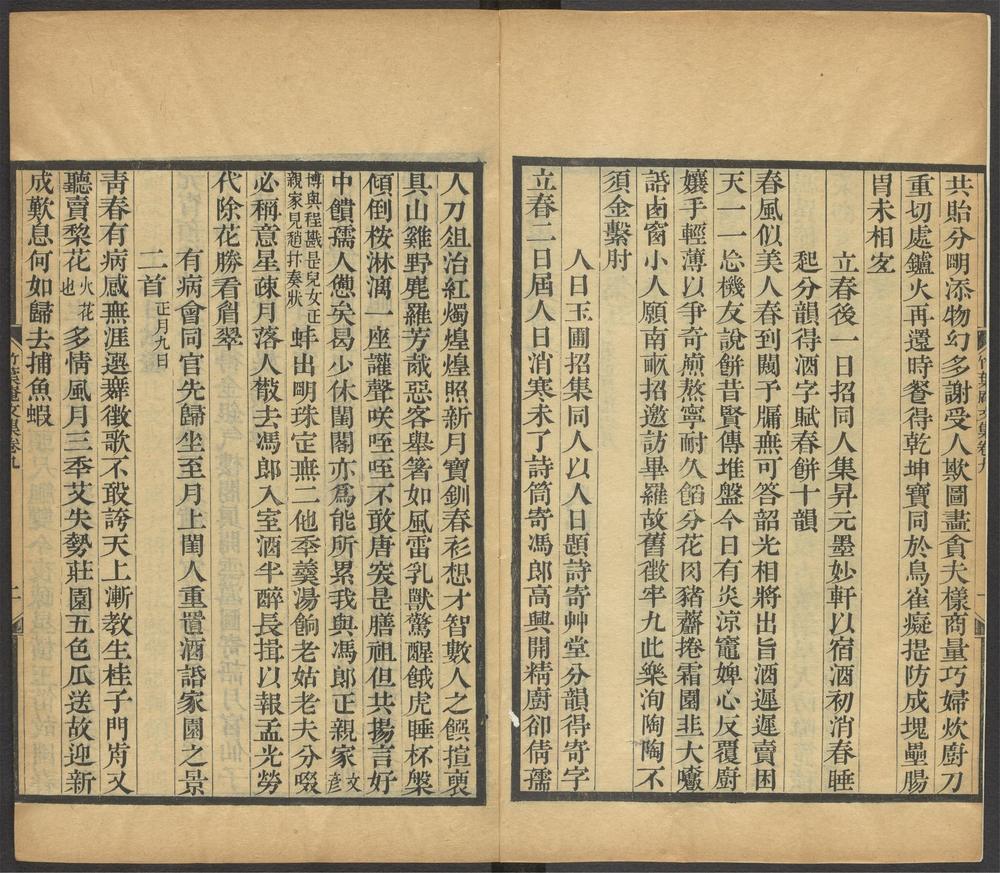 共貽分明添物幻多謝受人欺圖畫貪大樣商量巧婦炊廚刀
重切處鑪火再還時餐得乾坤寶同於鳥雀癡提防成塊壘腸
胃未相宐
立春後一日招同人集昇元墨妙軒以宿酒初消春睡
起分韻得酒字賦春餅十韻
春風似美人春到闚予牖無可答韶光相將出旨酒遲遲賣困
天一一忘機友說餅昔賢傳堆盤今日有炎涼竈婢心反覆廚
孃手輕薄以爭奇煎熬寧耐久餡分花肉豬虀捲霜園韭大嚼
話鹵窗小人願南畝招邀訪畢羅故舊徵牢九此樂洵陶陶不
須金繫肘
人日玉圃招集同人以人日題詩寄艸堂分韻得寄字
立春二日屆人日消寒未了詩筒寄馮郎高興開精廚卻倩孺
人刀俎治紅燭煌煌照新月寶釧春衫想才智數人之饌揎褏
具山雞野麂羅芳胾惡客舉箸如風雷乳獸驚醒餓虎睡杯槃
傾倒桉淋漓一座讙聲咲咥咥不敢唐突是膳祖但共揚言好
中饋孺人憊矣曷少休閨閣亦爲能所累我與馮郎正親家文彥
博與程戡是兒女正
親家見趙抃奏狀
蚌出明珠定無二他秊羹湯餉老姑老夫分啜
必稱意星疎月落人散去馮郎入室酒半醉長揖以報孟光勞
代除花勝看眉翠
有病會同官先歸坐至月上閨人重置酒語家園之景
二首正月九日
靑春有病感無涯選舞徵歌不敢誇天上漸教生桂子門前又
聽賣棃花火花也多情風月三秊艾失勢莊園五色瓜送故迎新
成歎息何如歸去捕魚蝦
竹葉庵文集卷九
二